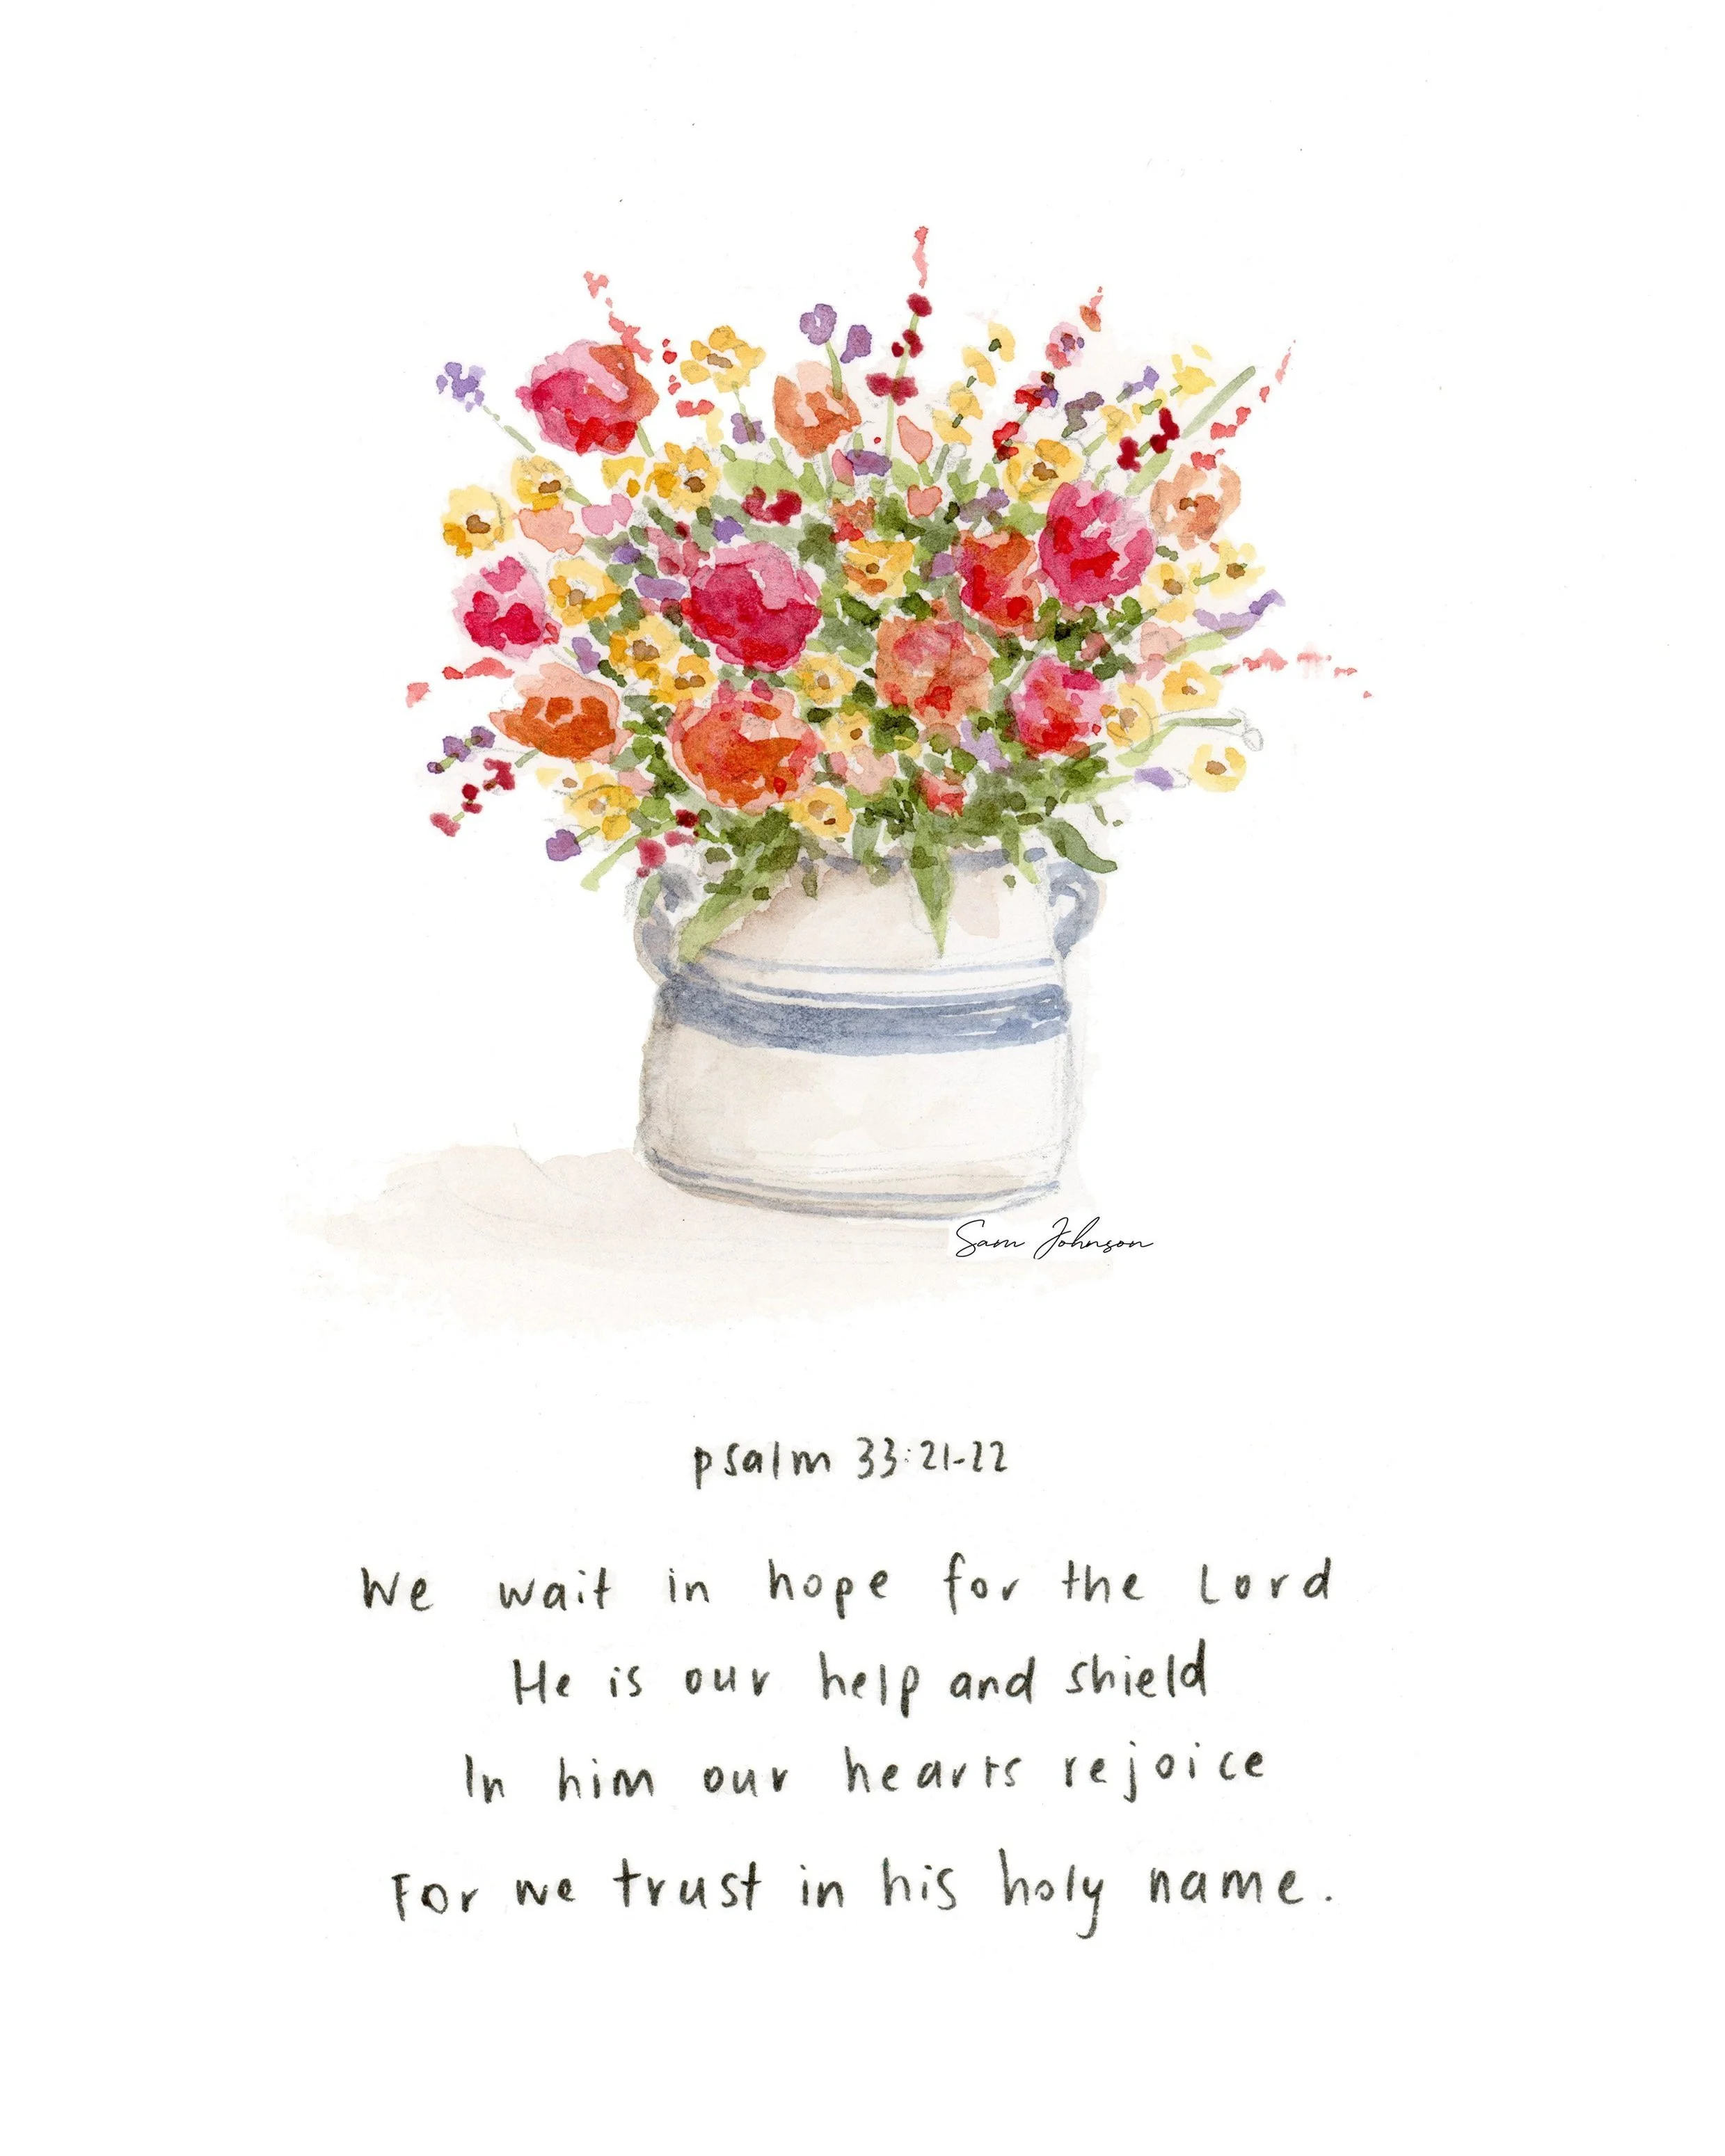 Sam Johnson
psalm 33:21-22
We wait in hope for the Lord
He is our help and shield
In him our hearts rejoice
For we trust in his holy name.